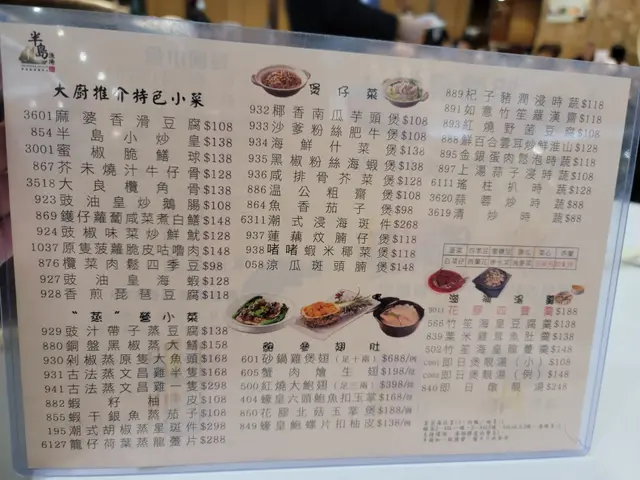 半島
漁港
大廚推介特色小菜
3601麻婆香滑豆腐$108
854半島小炒皇$138
3001蜜椒脆鱔球$138
867芥末燒汁牛仔骨$128
3518大良欖角骨$138
923豉油皇炒鵝腸$108
869鑊仔蘿蔔咸菜煮白鱔$148
924豉椒味菜炒鮮魷$128
1037原隻菠蘿脆皮咕嚕肉$148
876欖菜肉鬆四季豆$98
927豉油皇海蝦$128
928香煎琵琶豆腐$118
"蒸"藝小菜
929豉汁帶子蒸豆腐$138
880銅盤黑椒蒸大鱔$158
930剁椒蒸原隻大魚頭$168
931古法蒸文昌雞半隻$168
941古法蒸文昌雞一隻$298
882蝦籽柚皮$108
855蝦干銀魚蒸茄子$108
195潮式胡椒蒸星斑件$298
6127籠仔荷葉蒸龍躉片$288
煲仔菜
932椰香南瓜芋頭煲$108
933沙爹粉絲肥牛煲$108
934海鮮什菜煲$138
935黑椒粉絲海蝦煲$138
936咸排骨芥菜煲$128
886溫公粗齋煲$108
864魚香茄子煲$98
6311潮式浸海斑件$268
937蓮藕炆腩仔煲$118
938啫啫蝦米椰菜煲$118
058涼瓜斑頭腩煲$148
鮑參翅肚
601砂鍋雞煲翅(足十兩)$688/例
605蟹肉燴生翅$198/例
500紅燒大鮑翅(足三兩)$398/例
404蠔皇六頭鮑魚扣玉掌$168/例
850花膠北菇玉掌煲$188/例
849蠔皇鮑螺片扣柚皮$138/例
889杞子豬潤浸時蔬$118
891如意竹笙羅漢齋$118
893紅燒野菌豆腐$108
888鮮百合雲耳炒鮮淮山$128
895金銀蛋肉鬆泡時蔬$118
897上湯蒜子浸時蔬$118
6111瑤柱扒時蔬$128
3620蒜蓉炒時蔬$88
3619清炒時蔬$88
滋潤湯羹
9011花膠四寶羹$188
566竹笙海皇豆腐羹$138
839粟米雞茸魚肚羹$138
502竹笙海皇龍躉羹$148
即日煲靚湯(小)$108
即日煲靚湯(例)$148
840即日燉靚湯$248